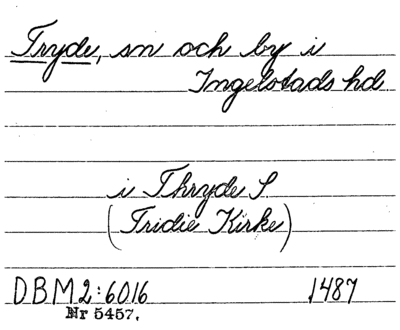 Tryde, sn och by i
Ingelstads hd
i Thryde S.
(Tridie Kirke)
DBM2:6016 1487
Nr 5457.